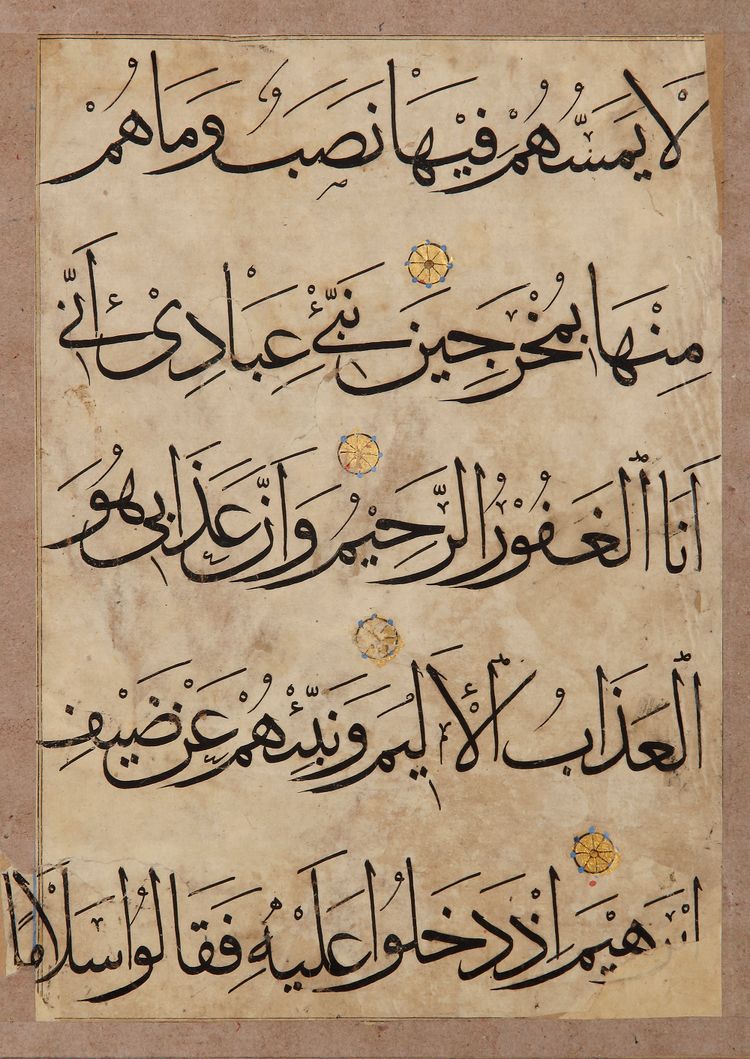 لَا يَمَسُّهُمْ فِيْهَا نَصَبٌ وَمَا هُمْ
مِنْهَا بِمُخْرَجِيْنَ نَبِّئْ عِبَادِىْ اَنِّى
اَنَا الْغَفُوْرُ الرَّحِيْمُ وَاَنَّ عَذَابِى هُوَ
الْعَذَابُ الْأَلِيْمُ وَنَبِّئْهُمْ عَنْ ضَيْفِ
اِبْرٰهِيْمَ اِذْ دَخَلُوْا عَلَيْهِ فَقَالُوْا سَلَامًا